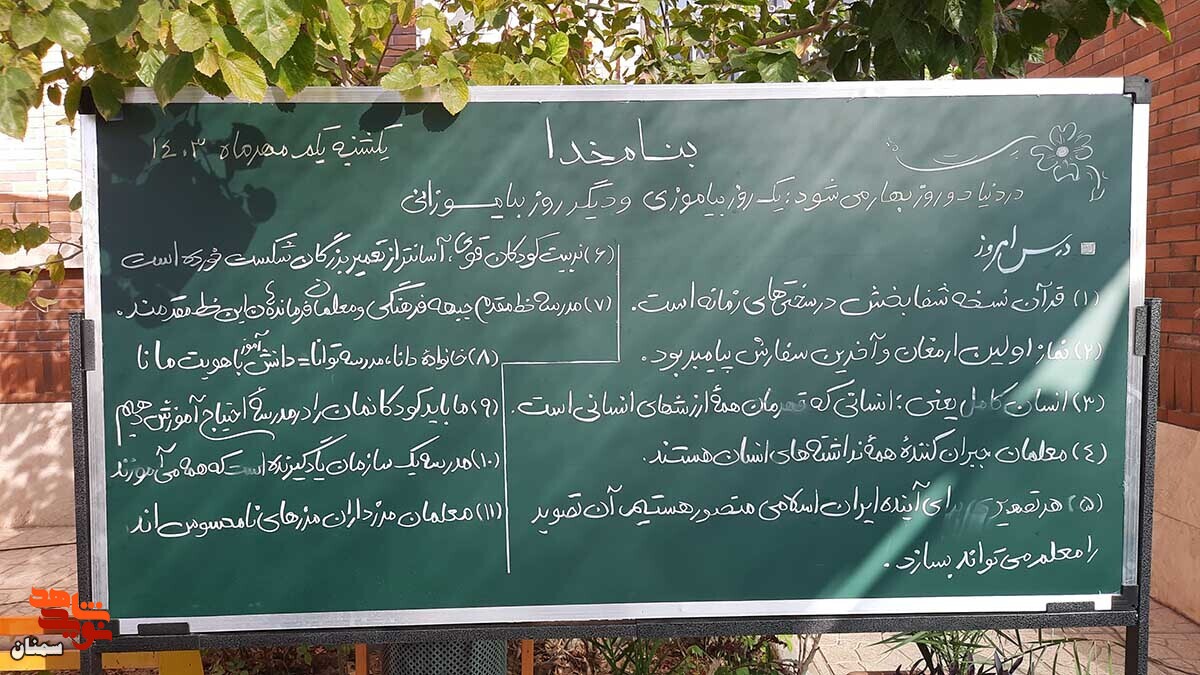 بنام خدا
یکشنبه یکم مهر ماه ۱۴۰۳
در دنیا دو روز بهار می شود؛ یک روز بیاموزی و دیگر روز بیاموزانی
درس امروز
(۱) قرآن نسخه شفابخش در سختی های زمانه است.
(۲) نماز اولین ارمغان و آخرین سفارش پیامبر بود.
(۳) انسان کامل یعنی؛ انسانی که قهرمان همهٔ ارزشهای انسانی است.
(۴) معلمان جبران کنندهٔ همه نداشته های انسان هستند.
(۵) هر تصویری برای آینده ایران اسلامی متصور هستیم، آن تصویر
را معلم می تواند بسازد.
(۶) تربیت کودکان قوی، آسانتر از تعمیر بزرگان شکست خورده است
(۷) مدرسه خط مقدم جبهه فرهنگی و معلمان فرماندهان این خط مقدمند.
(۸) خانوادهٔ دانا، مدرسه توانا = دانش آموز با هویت مانا
(۹) ما باید کودکانمان را در مدرسهٔ احتیاج آموزش دهیم
(۱۰) مدرسه یک سازمان یادگیرنده است که همه می آموزند
(۱۱) معلمان مرزداران مرزهای نامحسوس اند
نوید شاهد
سمنان